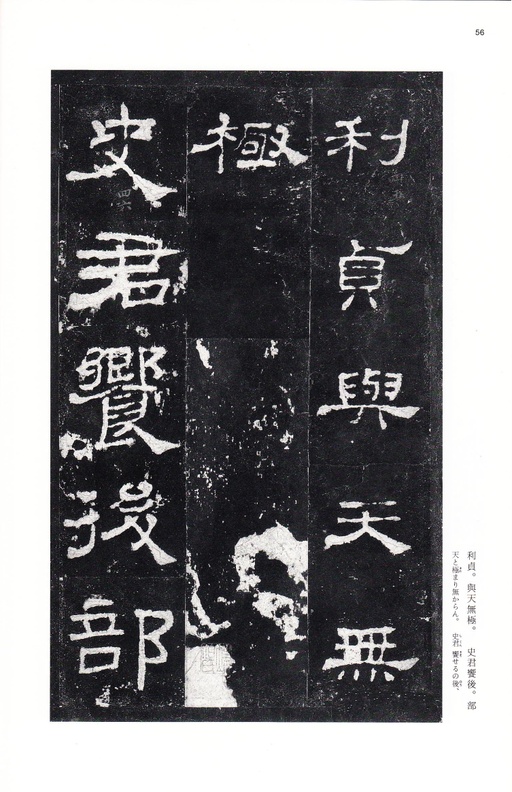 56
利貞與天無
極
史君饗後部
利貞。與天無極。　史君饗後。部
天と極まり無からん。　史君、饗せるの後、